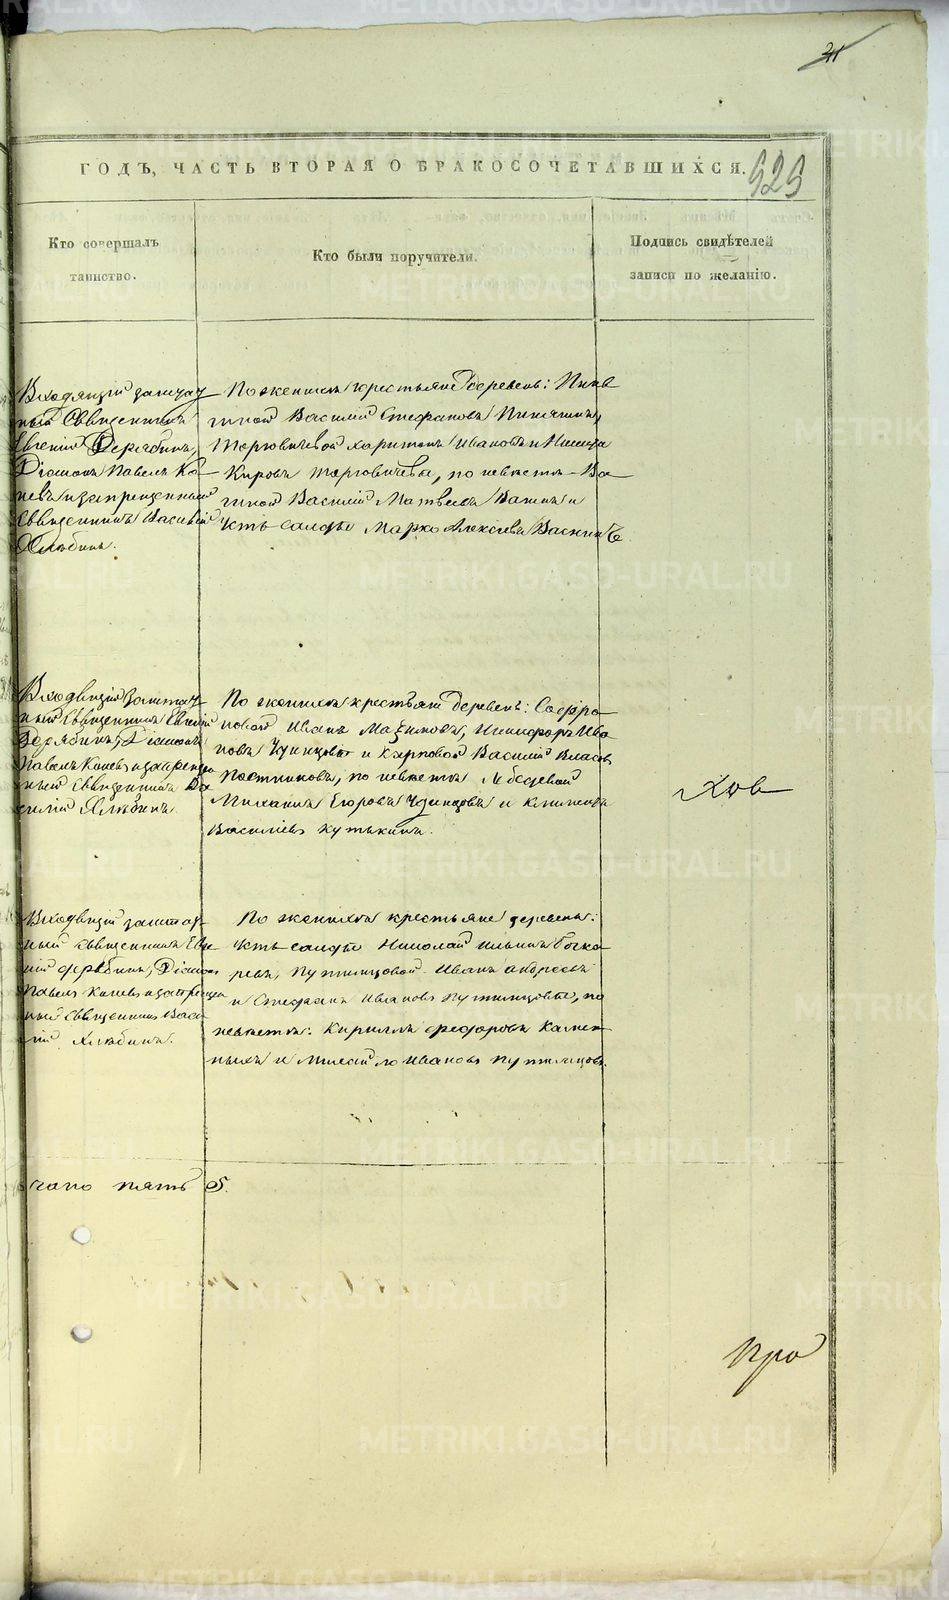 31
ГОДЪ, ЧАСТЬ ВТОРАЯ О БРАКОСОЧЕТАВШИХСЯ.
529
Кто совершалъ
таинство.
Кто были поручители.
Подпись свидѣтелей
записи по желанію.
Входящій заштат
ный Священникъ
Евгеній Дерябинъ,
Діаконъ Павелъ Ка
невъ и запрещенный
Священникъ Василій
Хлѣбинъ.
По женихѣ крестьяне деревень:
ной Василій Стефановъ
Харитонъ Ивановъ и
Кировъ по невѣстѣ Ва
гиной Василій Матвеевъ Вагинъ и
Усть салды Марко Алексѣевъ
Входящій Заштат
ный Священникъ Евгеній
Дерябинъ, Діаконъ
Павелъ Каневъ и запрещен
ный Священникъ Ва
силій Хлѣбинъ.
По женихѣ крестьяне деревень: Софро
новой Иванъ Никифоръ Ива
новъ и Карповой Василій Власовъ
Постниковъ, по невѣстѣ Лебедевой
Михаилъ Егоровъ и Климентъ
Василіевъ Кутькинъ.
Хов
Входящій заштат
ный священникъ Евге
ній Дерябинъ, Діаконъ
Павелъ Каневъ и запрещен
ный Священникъ Васи
лій Хлѣбинъ.
По женихѣ крестьяне деревень:
Усть салды Николай Ильинъ Бочка
ревъ, Путимцовой Иванъ Андреевъ
и Стефанъ Ивановъ Путимцовы, по
невѣстѣ: Кириллъ Федоровъ Камен
ныхъ и Ивановъ Путимцовъ.
чано пять 5.
Про
METRIKI.GASO-URAL.RU